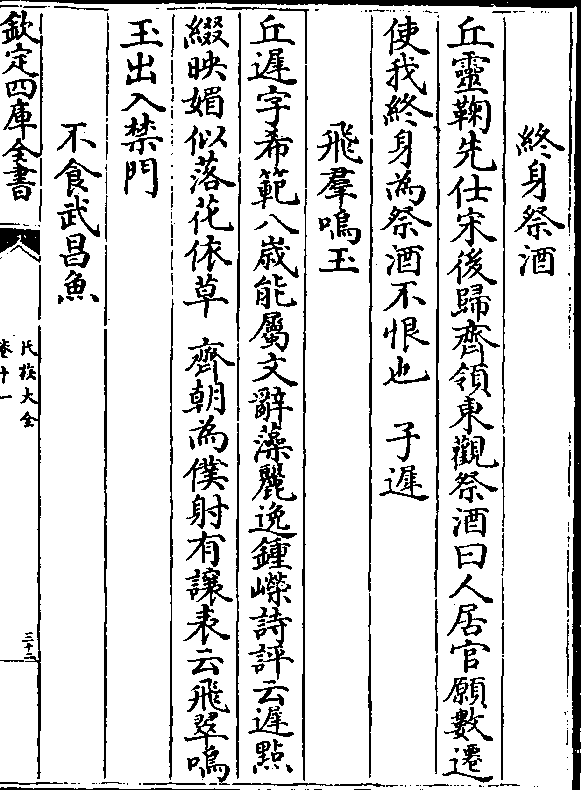 終身祭酒
丘靈鞠先仕宋後歸齊領東觀祭酒曰人居官願數遷
使我終身為祭酒不恨也　子遲
飛羣鳴玉
丘遲字希範八歲能屬文辭藻麗逸鍾嶸詩評云遲㸃
綴映媚似落花依草　齊朝為僕射有讓表云飛翠鳴
玉出入禁門
不食武昌魚
欽定四庫全書
氏族大全
卷十一
三十二